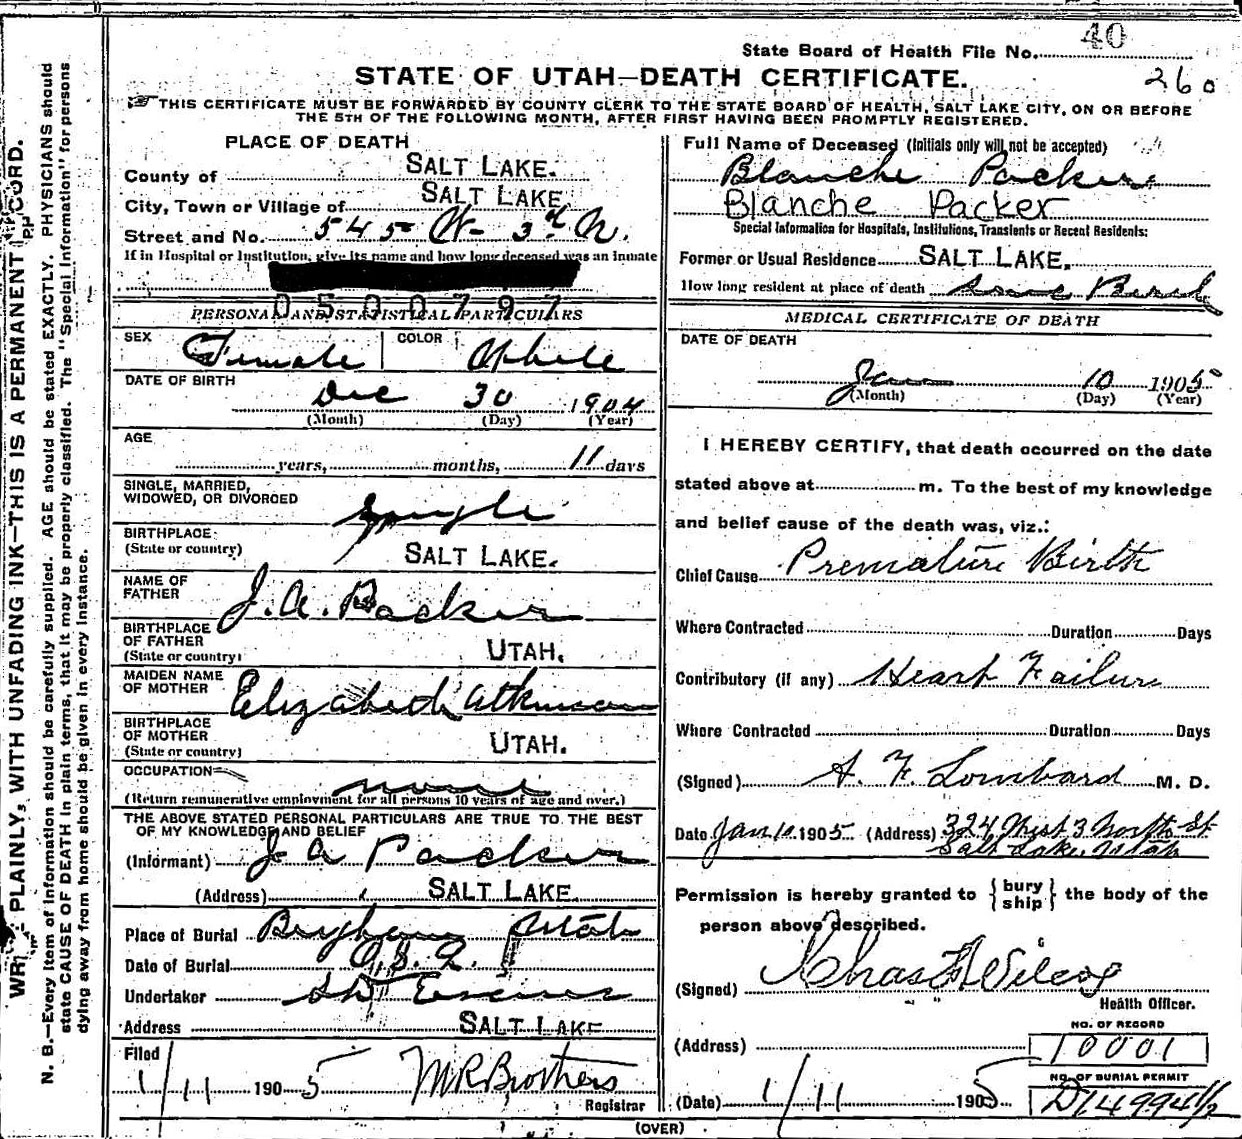 40
State Board of Health File No.
STATE OF UTAH—DEATH CERTIFICATE.
260
THIS CERTIFICATE MUST BE FORWARDED BY COUNTY CLERK TO THE STATE BOARD OF HEALTH, SALT LAKE CITY, ON OR BEFORE
THE 5TH OF THE FOLLOWING MONTH, AFTER FIRST HAVING BEEN PROMPTLY REGISTERED.
PLACE OF DEATH
County of SALT LAKE.
City, Town or Village of SALT LAKE
Street and No. 545 W- 3rd N.
If in Hospital or Institution, give its name and how long deceased was an inmate
0500797
PERSONAL AND STATISTICAL PARTICULARS
SEX Female COLOR White
DATE OF BIRTH
Dec 30 1904
(Month) (Day) (Year)
AGE
years, months, 11 days
SINGLE, MARRIED,
WIDOWED, OR DIVORCED Single
BIRTHPLACE
(State or country) SALT LAKE.
NAME OF
FATHER J. A. Packer
BIRTHPLACE
OF FATHER
(State or country) UTAH.
MAIDEN NAME
OF MOTHER Elizabeth Atkinson
BIRTHPLACE
OF MOTHER
(State or country) UTAH.
OCCUPATION none
(Return remunerative employment for all persons 10 years of age and over.)
THE ABOVE STATED PERSONAL PARTICULARS ARE TRUE TO THE BEST
OF MY KNOWLEDGE AND BELIEF
(Informant) J A Packer
(Address) SALT LAKE.
Place of Burial Brigham Utah
Date of Burial
Undertaker
Address SALT LAKE
Filed
1/11 1905 M R Brothers
Registrar
Full Name of Deceased (Initials only will not be accepted)
Blanche Packer
Blanche Packer
Special Information for Hospitals, Institutions, Transients or Recent Residents:
Former or Usual Residence SALT LAKE.
How long resident at place of death since Birth
MEDICAL CERTIFICATE OF DEATH
DATE OF DEATH
Jan 10 1905
(Month) (Day) (Year)
I HEREBY CERTIFY, that death occurred on the date
stated above at m. To the best of my knowledge
and belief cause of the death was, viz.:
Chief Cause Premature Birth
Where Contracted Duration Days
Contributory (if any) Heart Failure
Where Contracted Duration Days
(Signed) A. F. Lombard M. D.
Date Jan 10 1905 (Address) 324 West 3 North St
Salt Lake, Utah
Permission is hereby granted to {bury
ship} the body of the
person above described.
(Signed) Chas
Health Officer.
NO. OF RECORD
(Address) 10001
NO. OF BURIAL PERMIT
(Date) 1/11 1905 D14994½
(OVER)
PLAINLY, WITH UNFADING INK—THIS IS A PERMANENT
N. B.—Every item of information should be carefully supplied. AGE should be stated EXACTLY. PHYSICIANS should
state CAUSE OF DEATH in plain terms, that it may be properly classified. The "Special Information" for persons
dying away from home should be given in every instance.